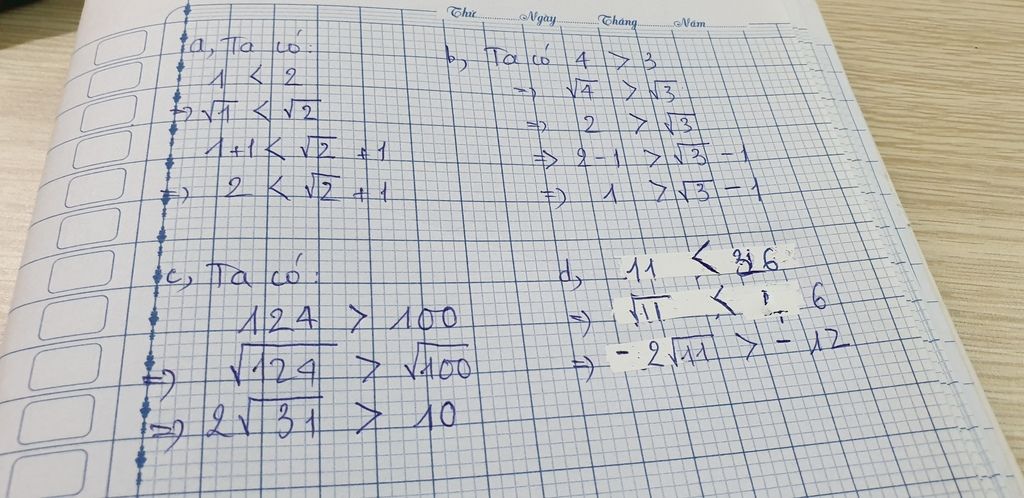 Thứ Ngày Tháng Năm
a, Ta có:
1 < 2
=> √1 < √2
1+1 < √2 + 1
=> 2 < √2 + 1
b, Ta có 4 > 3
=> √4 > √3
=> 2 > √3
=> 2 - 1 > √3 - 1
=> 1 > √3 - 1
c, Ta có:
124 > 100
=> √124 > √100
=> 2√31 > 10
d, 11 < 36
=> √11 < 6
=> - 2√11 > - 12